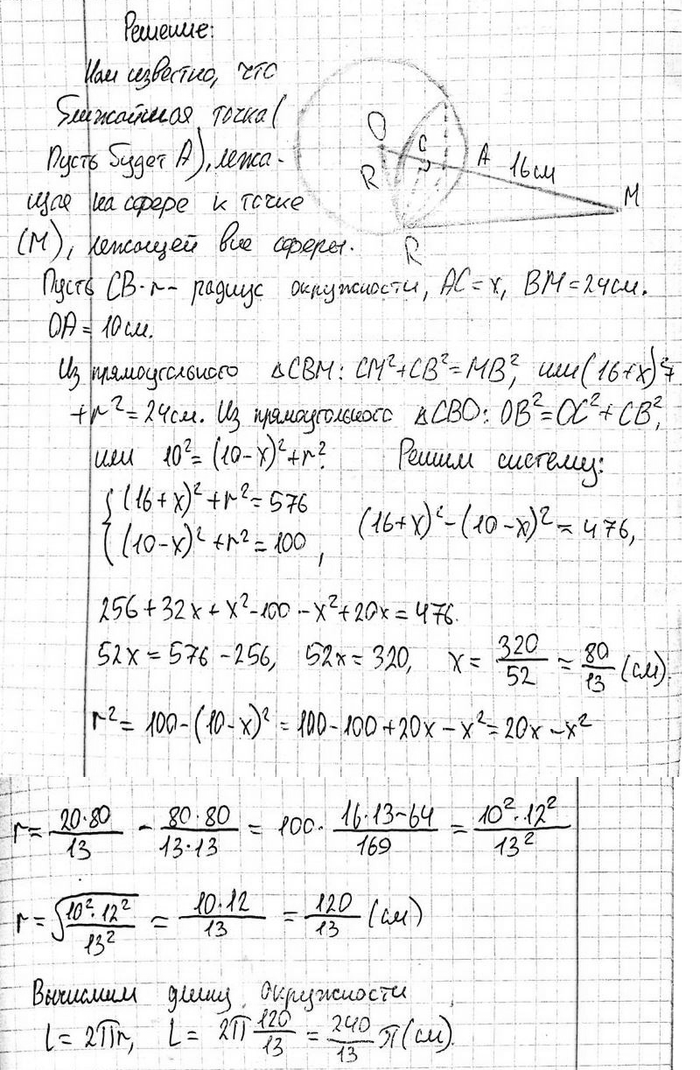 Решение:
Нам известно, что
ближайшая точка (
Пусть будет A), лежа-
щая на сфере к точке
(M), лежащей вне сферы.
O
C
A
16см
M
R
R
Пусть CB-r- радиус окружности, AC=x, BM=24см.
OA=10см.
Из прямоугольного ΔCBM: CM²+CB²=MB², или (16+x)²+
+r²=24см. Из прямоугольного ΔCBO: OB²=OC²+CB²,
или 10²=(10-x)²+r². Решим систему:
{ (16+x)²+r²=576
{ (10-x)²+r²=100, (16+x)²-(10-x)²=476,
256+32x+x²-100-x²+20x=476.
52x=576-256, 52x=320, x=320/52=80/13 (см).
r²=100-(10-x)²=100-100+20x-x²=20x-x²
r=20·80/13 - 80·80/13·13 = 100· 16·13-64/169 = 10²·12²/13²
r=√10²·12²/13² = 10·12/13 = 120/13 (см)
Вычислим длину окружности
l=2πr, L=2π 120/13 = 240/13 π(см).